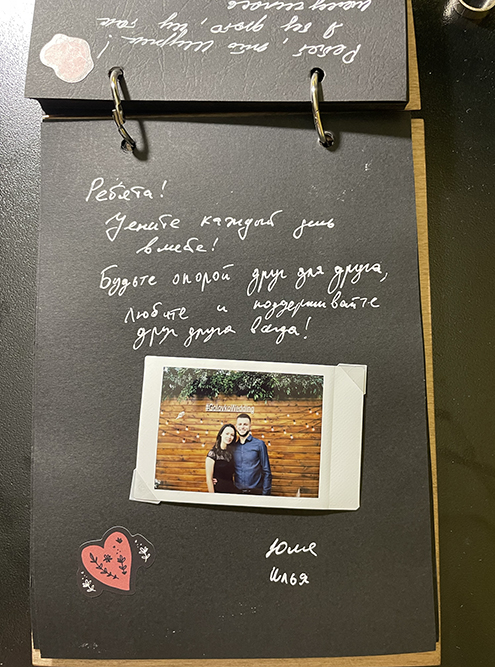 Ребят, это
Я
Ребята!
Цените каждый день
вместе!
Будьте опорой друг для друга,
любите и поддерживайте
друг друга всегда!
#GolovkoWedding
Юля
Илья